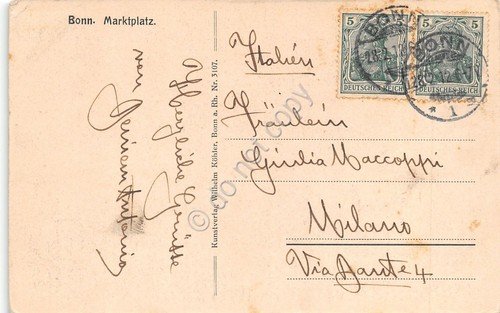 Bonn. Marktplatz.
Herzliche Grüsse
von
Deinem Antonio
Kunstverlag Wilhelm Köhler, Bonn a. Rh. Nr. 3107.
Italien
5 5
DEUTSCHES REICH DEUTSCHES REICH
BONN BONN
* 1
Fräulein
Giulia Maccoppi
Milano
Via Dante 4
do not copy